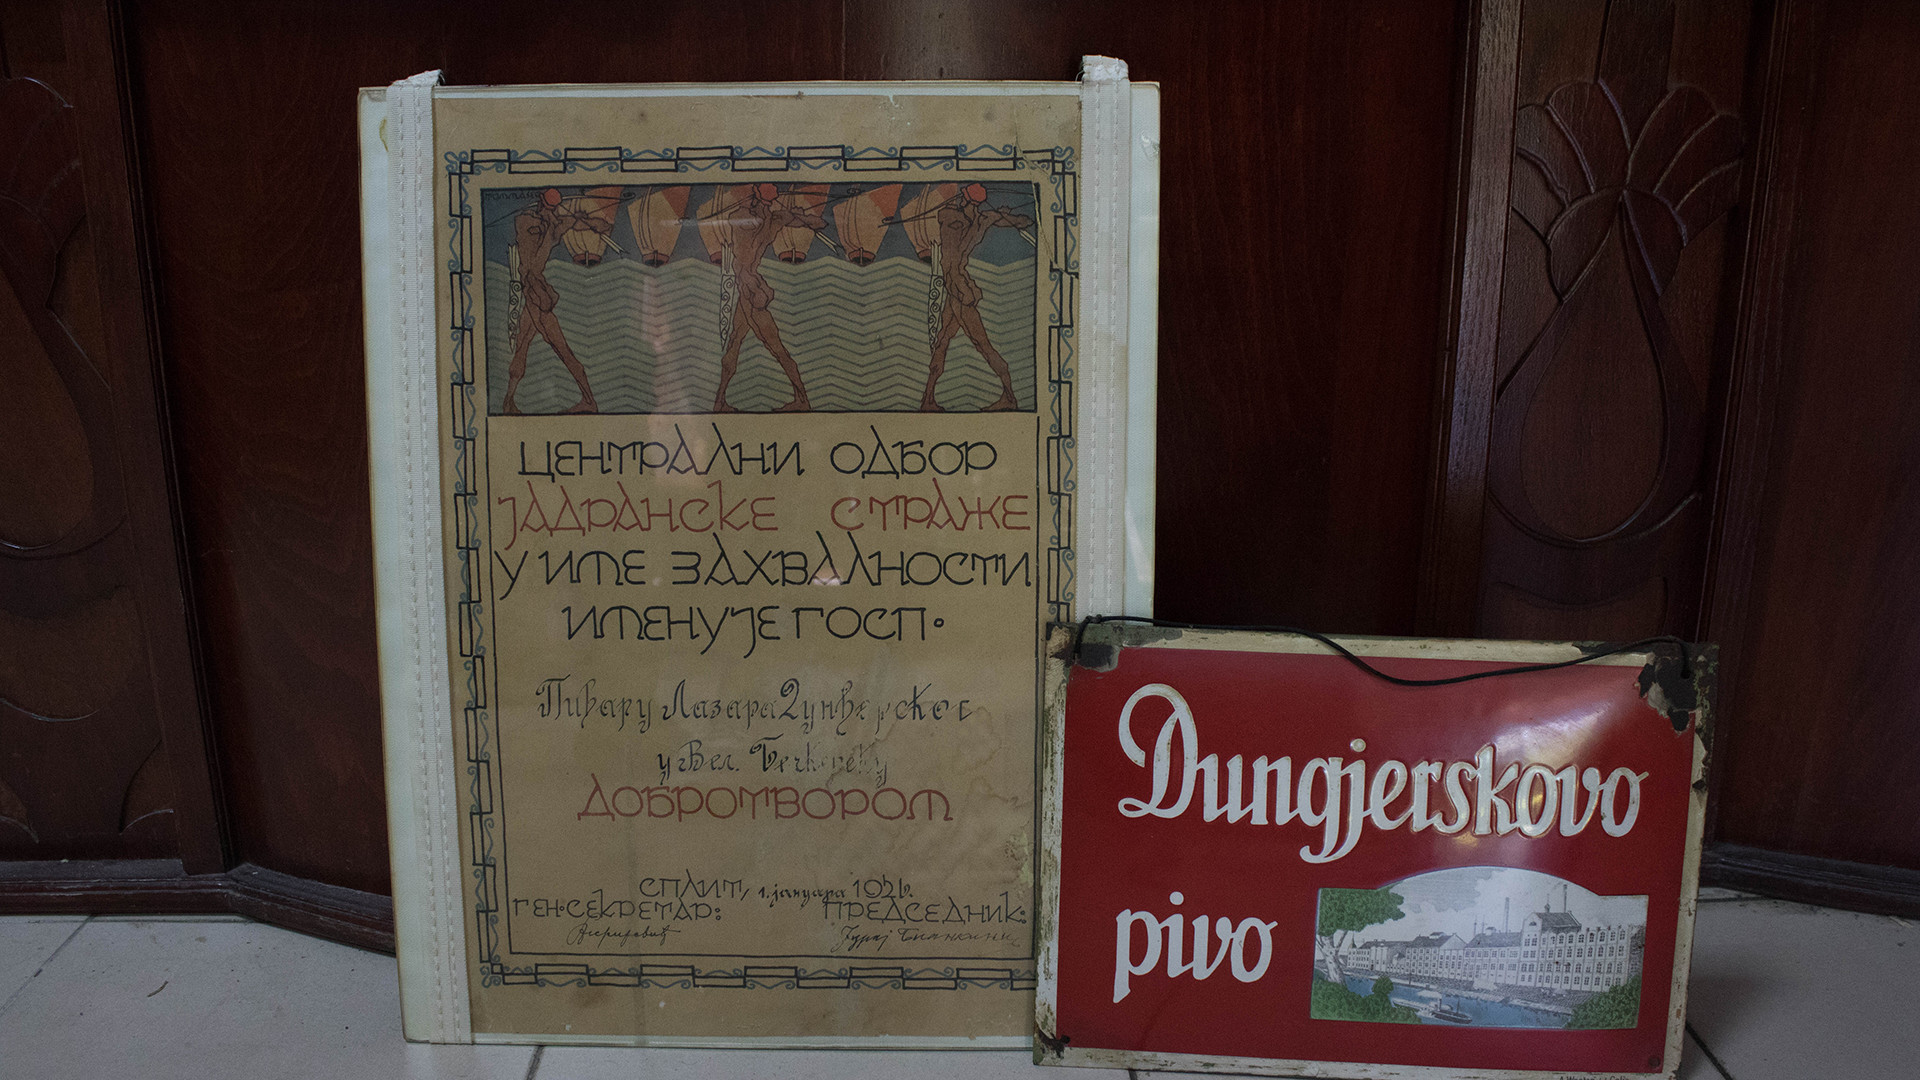 ЦЕНТРАЛНИ ОДБОР
ЈАДРАНСКЕ СТРАЖЕ
У ИМЕ ЗАХВАЛНОСТИ
ИМЕНУЈЕ ГОСП.
Пивару Лазара Дунђерског
у Вел. Бечкереку
ДОБРОТВОРОМ
СПЛИТ, 1. јануара 1926.
ГЕН. СЕКРЕТАР: ПРЕДСЕДНИК:
Јурај Бианкини
Dungjerskovo
pivo